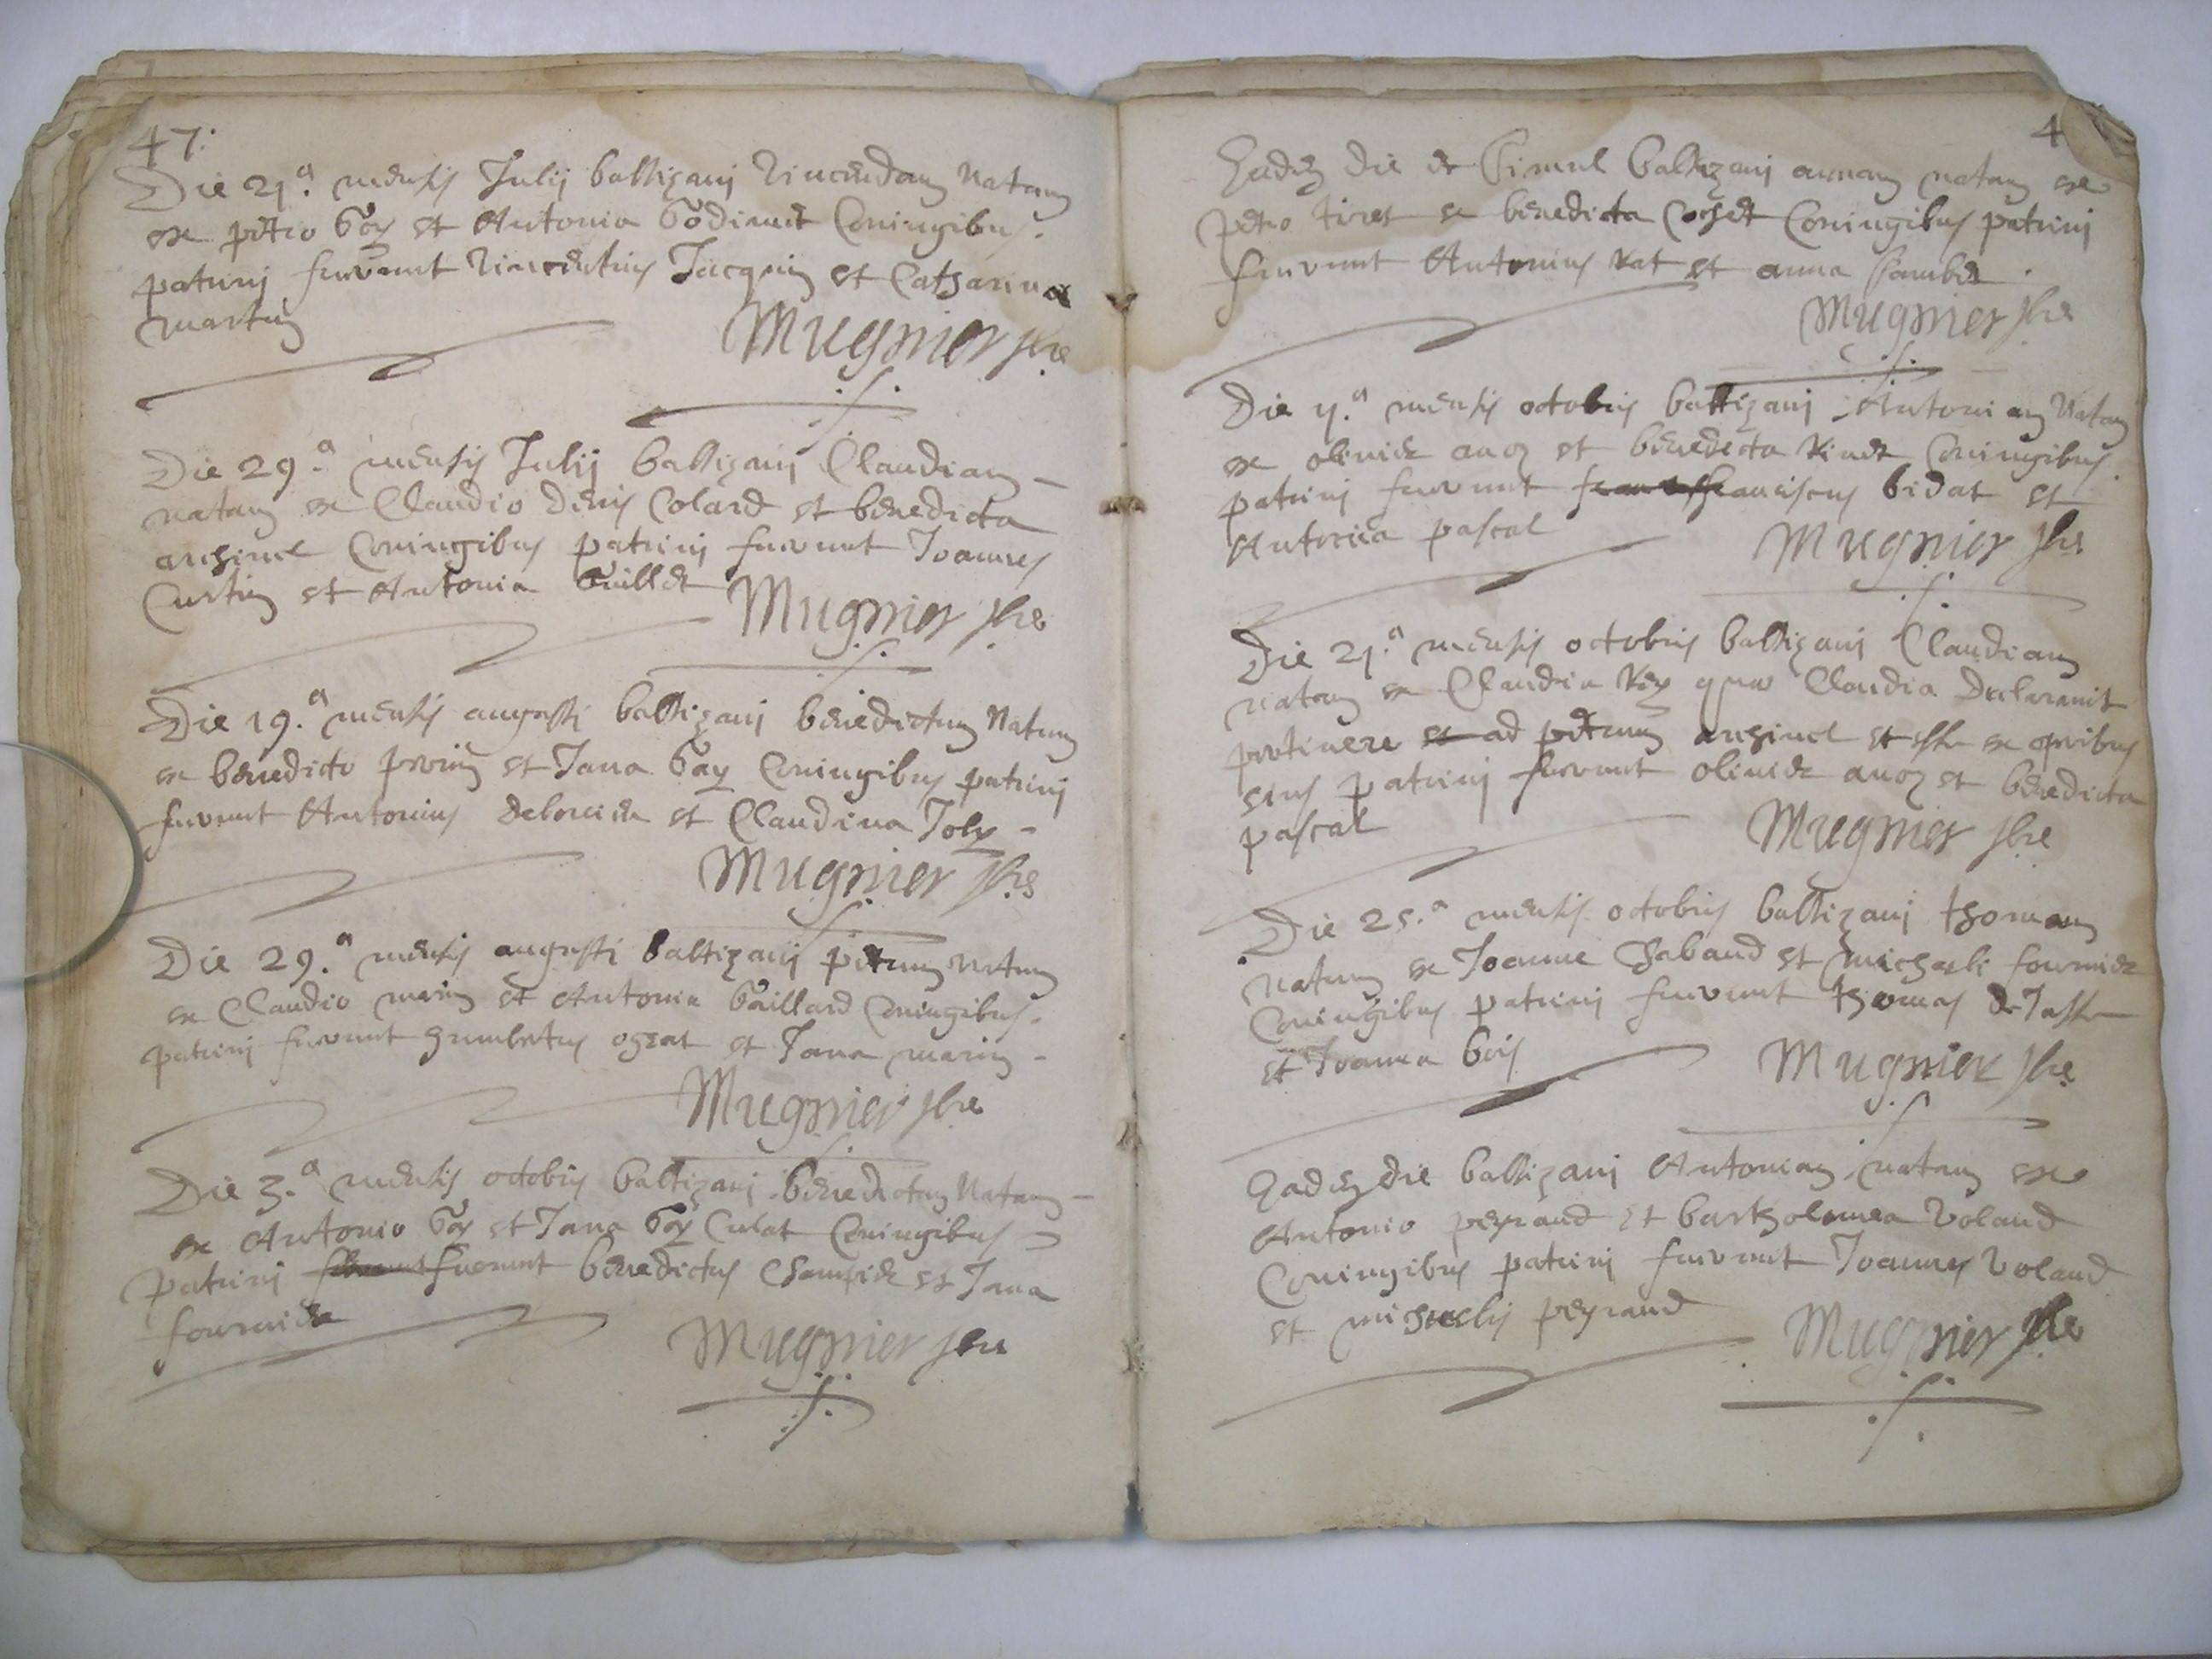 47:
Die 21.a mensis Julij baptizavi Vincendam Natam
ex petro Gay et Antonia Godinet Coniugibus.
patrini fuerunt Vincentius Jacquin et Catharina
martin
Mugnier
Die 29.a mensis Julij baptizavi Claudiam
natam ex Claudio Denis Colard et benedicta
arthinel Coniugibus patrini fuerunt Joannes
Curtin et Antonia Guillet
Mugnier
Die 19.a mensis augusti baptizavi benedictum Natum
ex benedicto perrin et Jana Gay Coniugibus patrini
fuerunt Antonius et Claudina Joly
Mugnier
Die 29.a mensis augusti baptizavi petrum Natum
ex Claudio marin et Antonia Gaillard Coniugibus.
patrini fuerunt humbertus et Jana marin
Mugnier
Die 3.a mensis octobris baptizavi benedictam Natam
ex Antonio Gay et Jana Gay Curat Coniugibus
patrini fuerunt benedictus et Jana
fournier
Mugnier
4
Eadem die et simul baptizavi annam natam ex
petro tires et benedicta Cochet Coniugibus patrini
fuerunt Antonius Rat et anna
Mugnier
Die mensis octobris baptizavi Antoniam Natam
ex olivier et benedicta Coniugibus.
patrini fuerunt franciscus bidat et
Antonia pascal
Mugnier
Die 21.a mensis octobris baptizavi Claudiam
natam ex Claudia Rey quae Claudia Declaravit
pertinere ad petrum arthinel et esse ex operibus
eius patrini fuerunt olivier et benedicta
pascal
Mugnier
Die 25.a mensis octobris baptizavi thomam
natum ex Joanne Chabaud et michaeli fournier
Coniugibus patrini fuerunt thomas
et Joanna
Mugnier
Eadem die baptizavi Antoniam natam ex
Antonio peyraud et bartholomea Volaud
Coniugibus patrini fuerunt Joannes Volaud
et michaelis peyraud
Mugnier